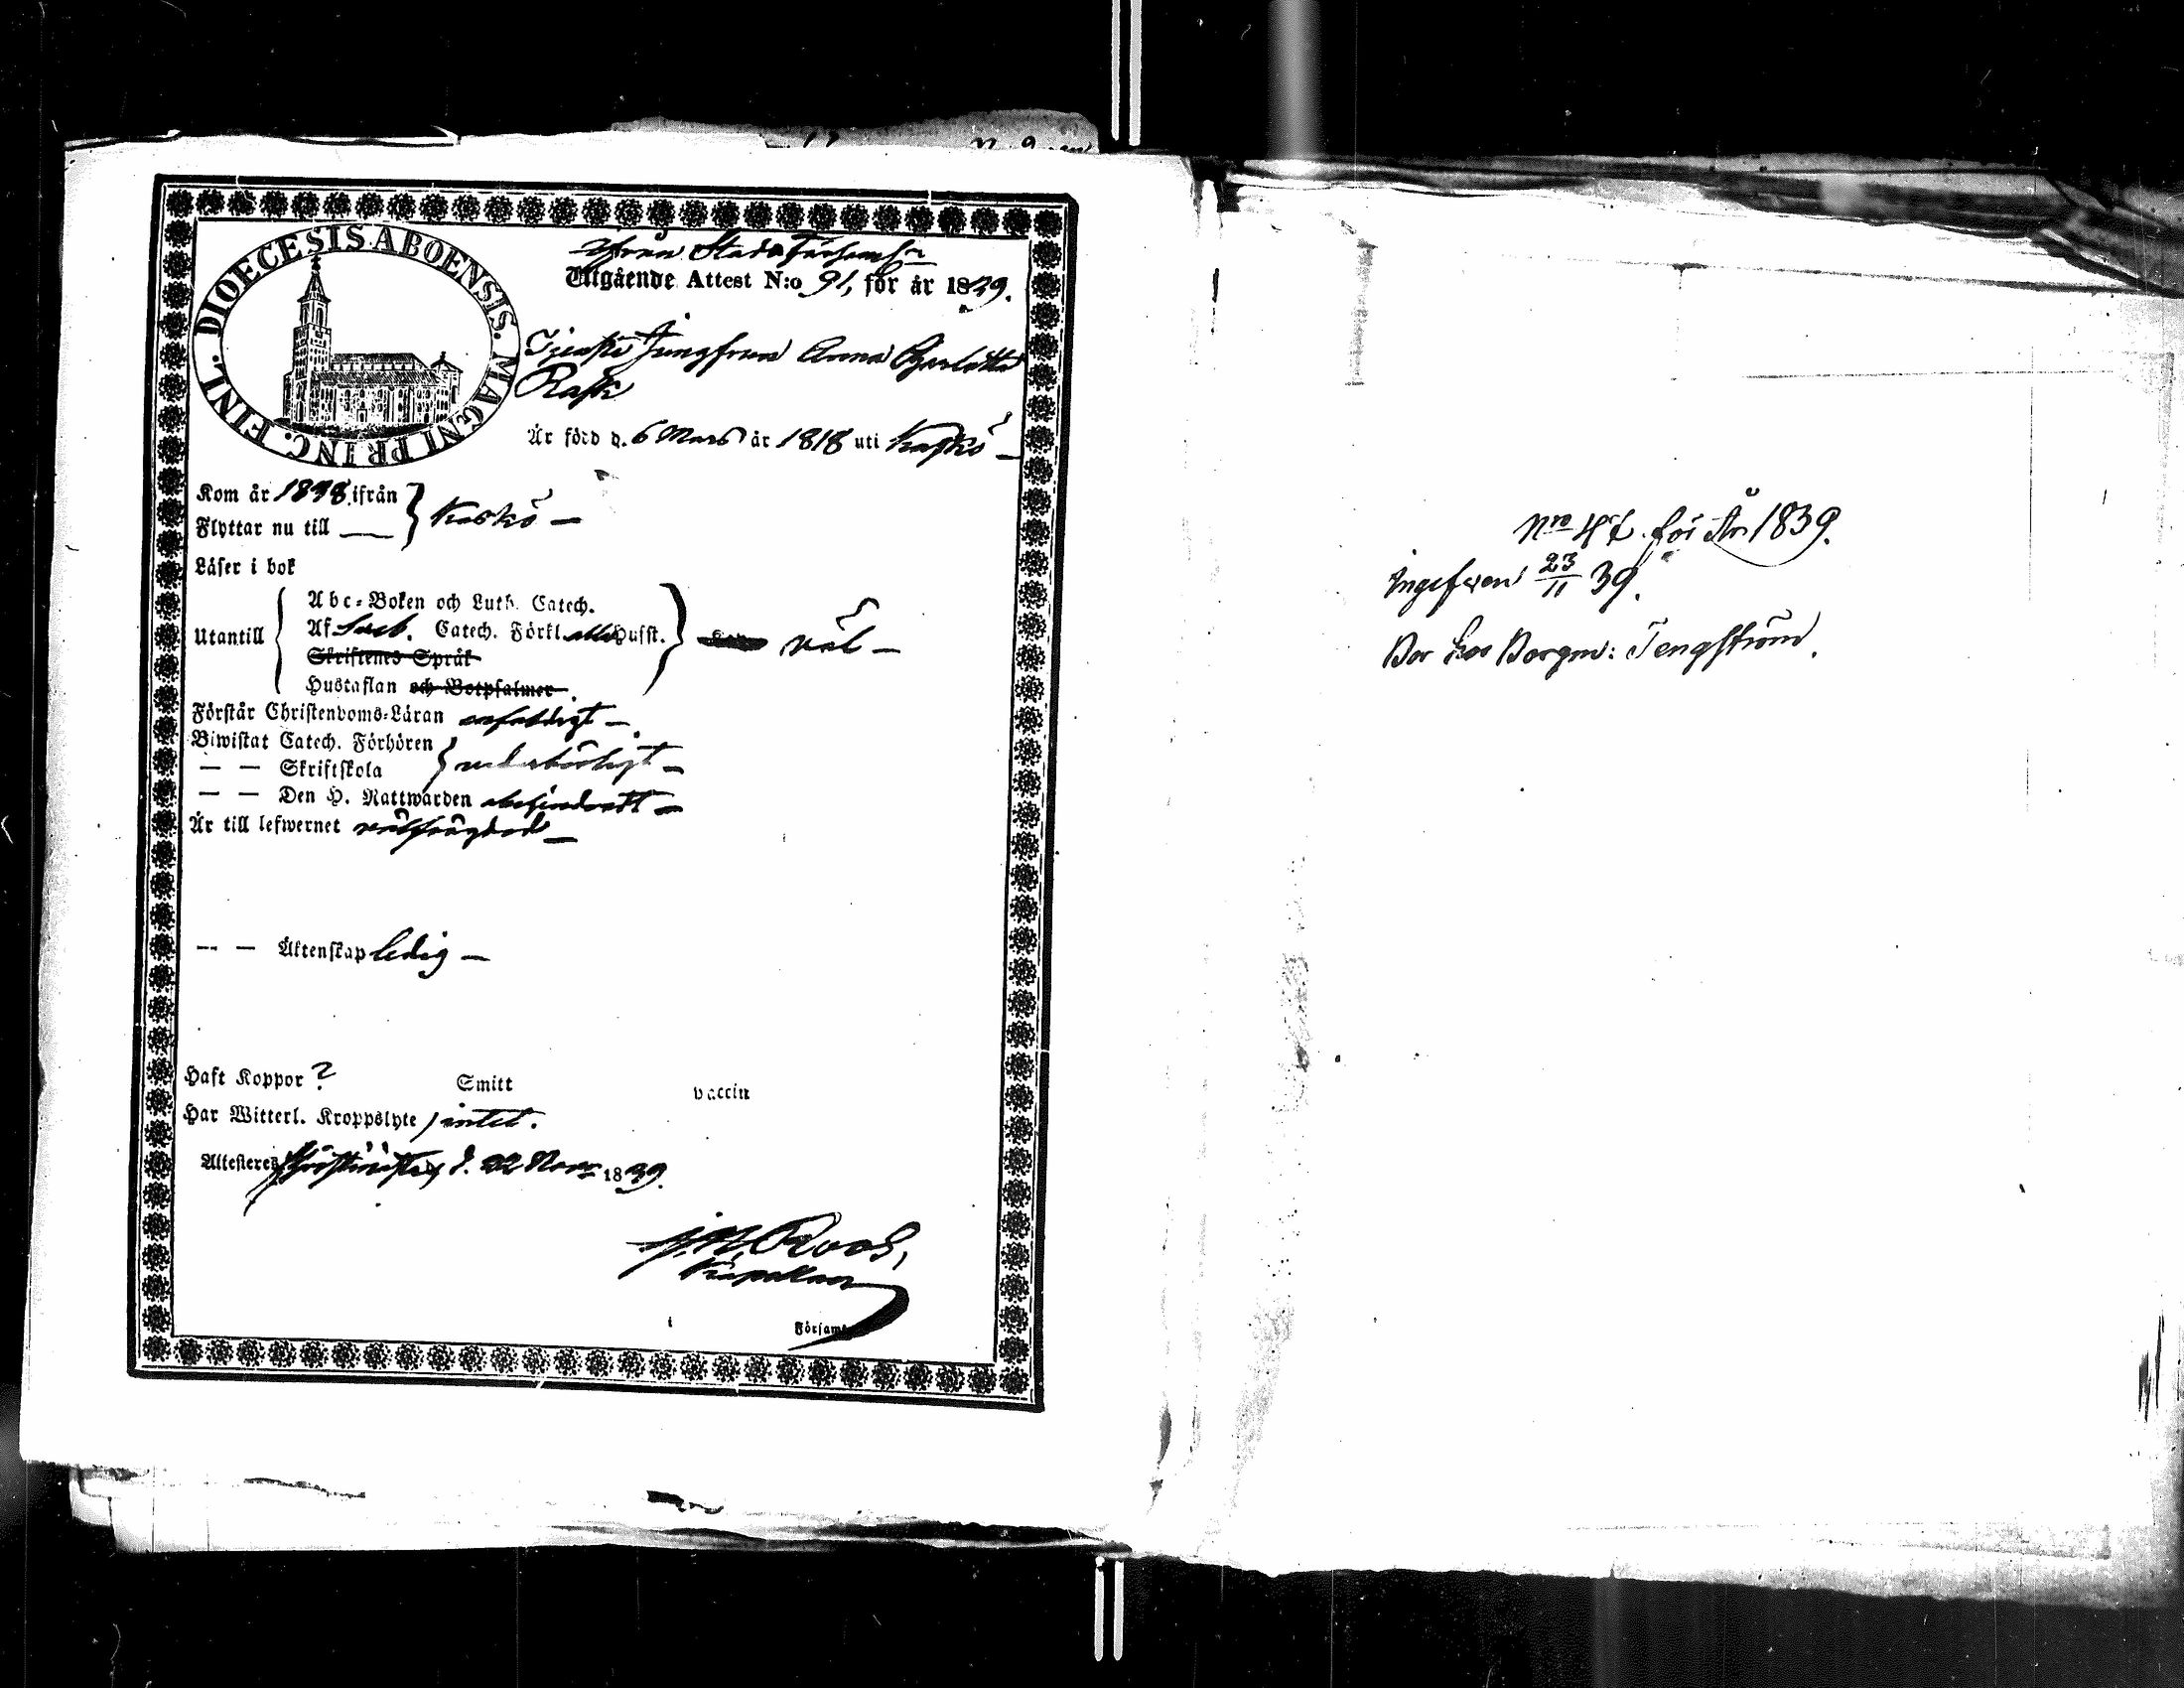 DIOECESIS ABOENSIS. MAGNI PRINC. FINL.
ifrån Stads Församl:n
Utgående Attest N:o 91, för år 1839.
Tjenste Jungfrun Anna Charlotta
Rask
Är född d. 6 Mars år 1818 uti Kaskö —
Kom år 1838 ifrån } Kaskö —
Flyttar nu till —
Läser i bok
Utantill { Abc-Boken och Luth. Catech.
Af Sveb. Catech. Förkl. alla Hufst. } väl —
Skriftenes Språk
Hustaflan och Botpsalmer.
Förstår Christendoms-Läran enfaldigt —
Biwistat Catech. Förhören
— — Skriftskola } vederbörligt —
— — Den H. Nattwarden obehindradt —
Är till lefwernet välfrägdad —
— — Äktenskap ledig —
Haft Koppor ? Smitt vaccin
Har Witterl. Kroppslyte intet.
Attesteres Christinestad d. 22 Nov. 1839.
Roos,
Kapellan
i Församl
Nro 47. för År 1839.
Ingifven 23/11 39.
Bor hos Borgm: Tengström.